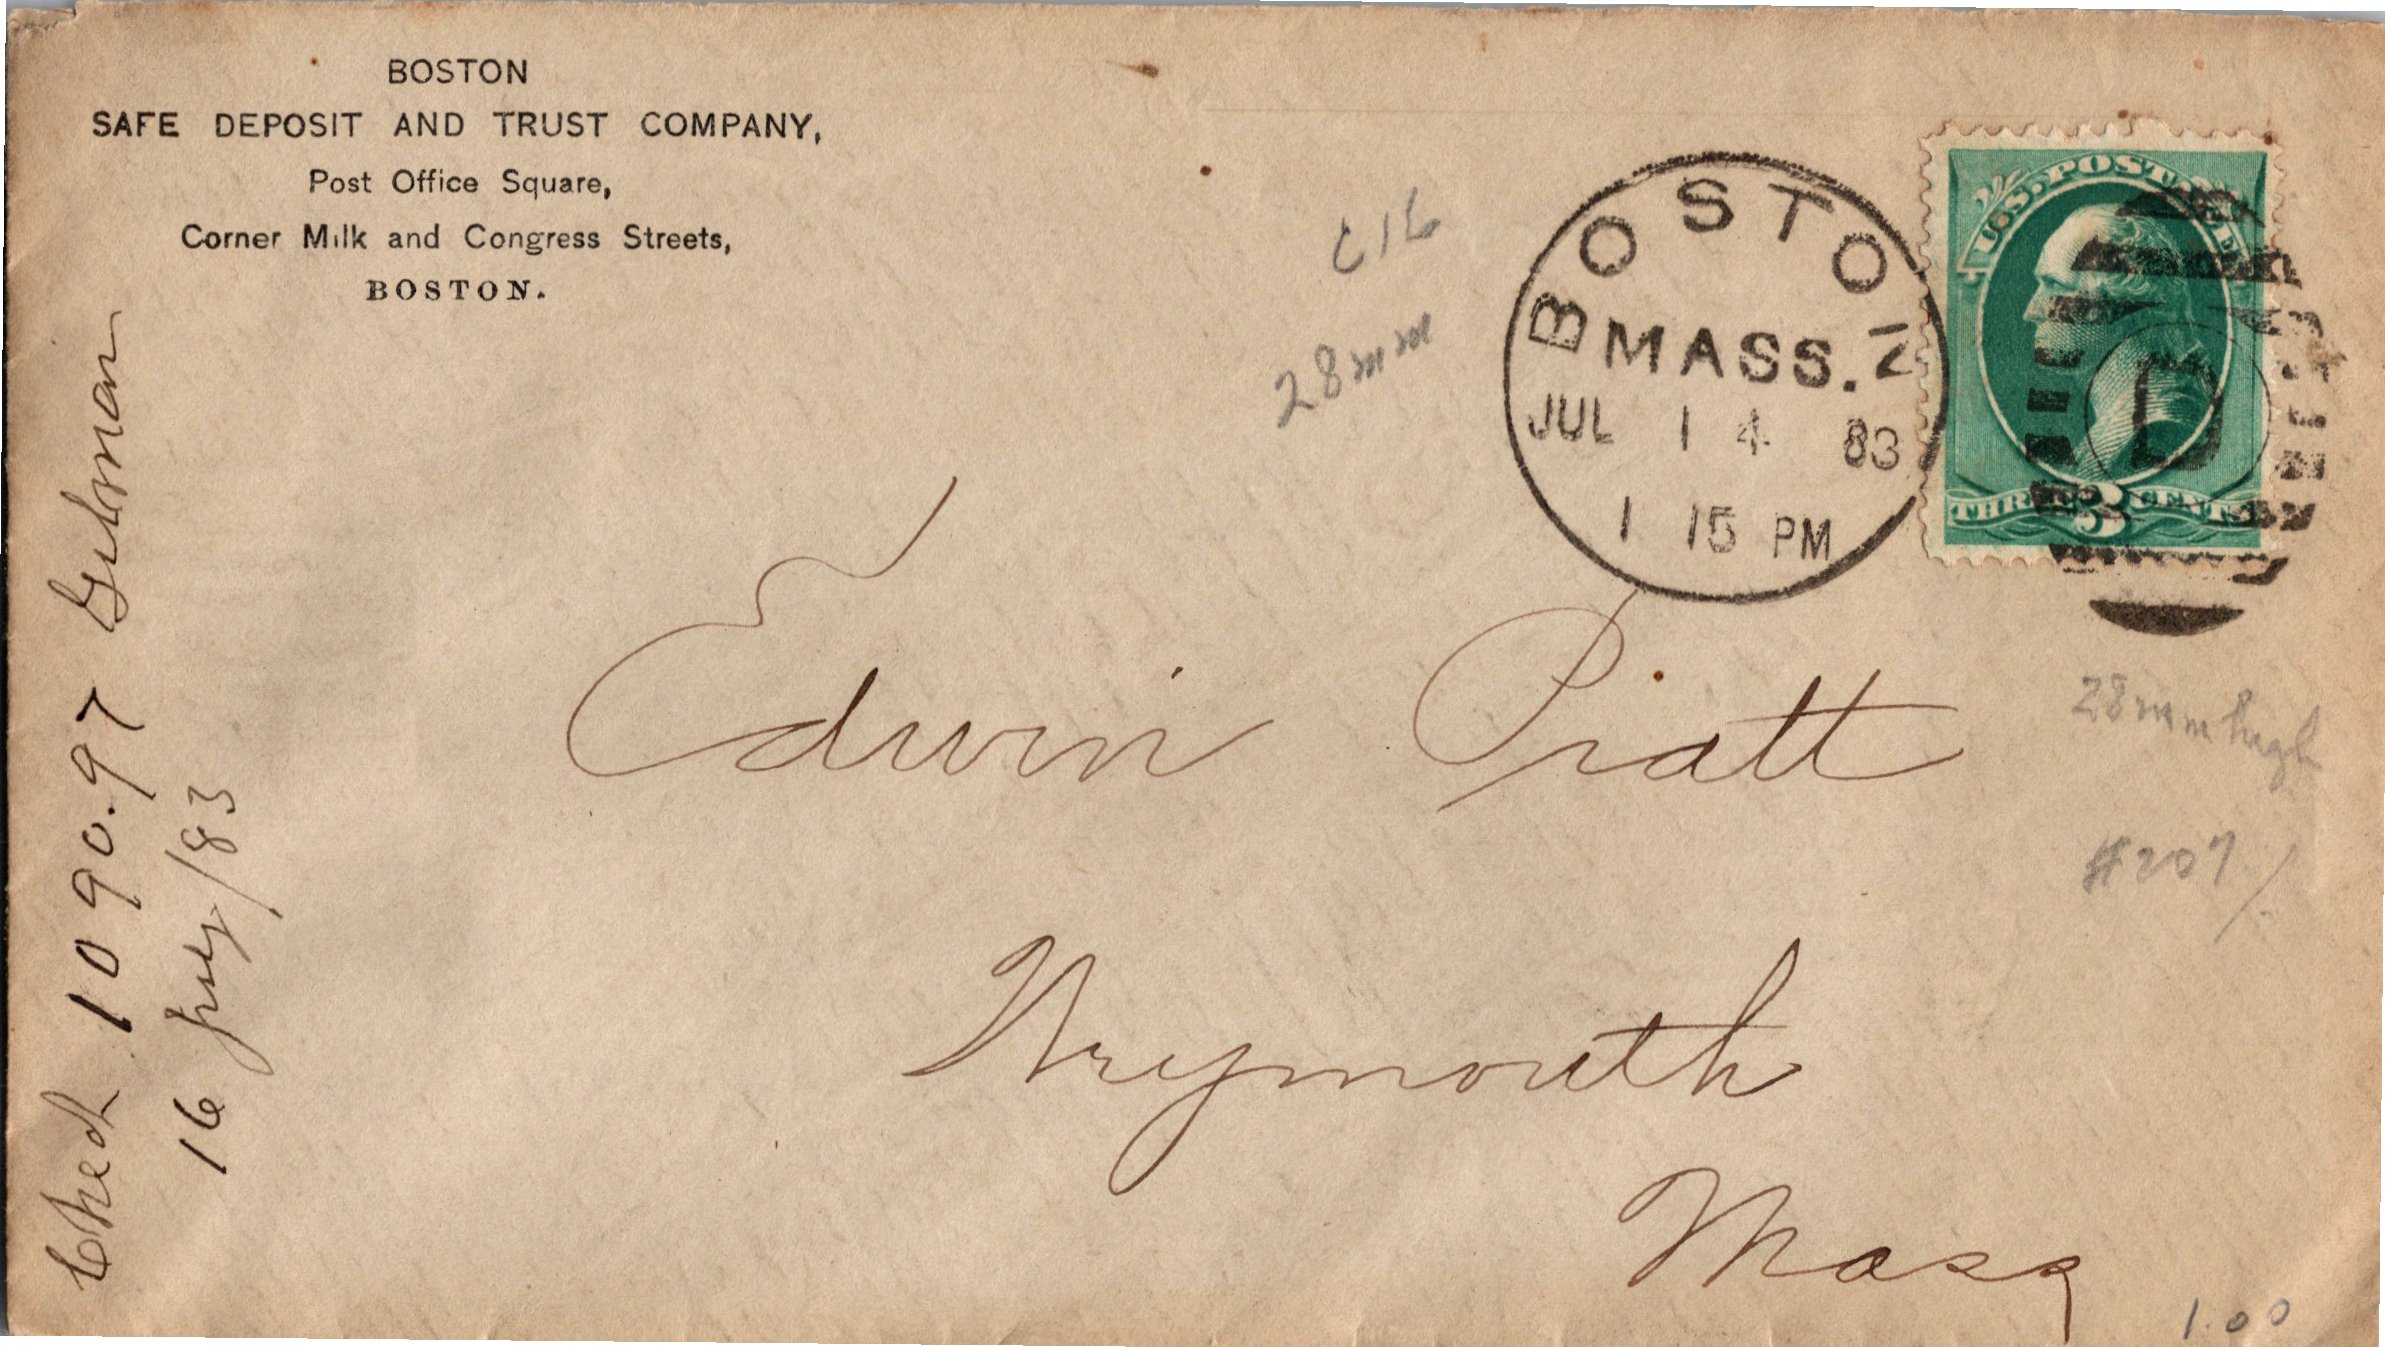 BOSTON
SAFE DEPOSIT AND TRUST COMPANY,
Post Office Square,
Corner Milk and Congress Streets,
BOSTON.
BOSTON
MASS.
JUL 14 83
1 15 PM
U.S. POSTAGE
THREE 3 CENTS
C16
28mm
Edwin Pratt
Weymouth
Mass
28mm high
#207
1.00
Check 1090.97 Gilman
16 July/83